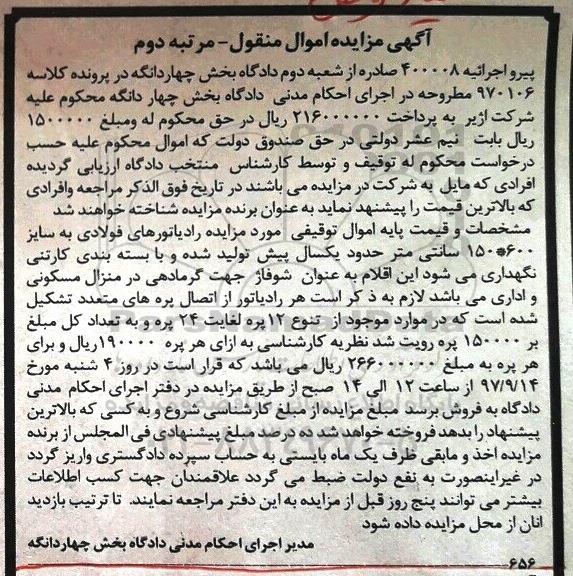 آگهی مزایده اموال منقول- مرتبه دوم
پیرو اجرائیه ۴۰۰۰۰۸ صادره از شعبه دوم دادگاه بخش چهاردانگه در پرونده کلاسه
۹۷۰۱۰۶ مطروحه در اجرای احکام مدنی دادگاه بخش چهار دانگه محکوم علیه
شرکت اژیر به پرداخت ۲۱۶۰۰۰۰۰۰ ریال در حق محکوم له ومبلغ ۱۵۰۰۰۰۰
ریال بابت نیم عشر دولتی در حق صندوق دولت که اموال محکوم علیه حسب
درخواست محکوم له توقیف و توسط کارشناس منتخب دادگاه ارزیابی گردیده
افرادی که مایل به شرکت در مزایده می باشند در تاریخ فوق الذکر مراجعه وافرادی
که بالاترین قیمت را پیشنهد نماید به عنوان برنده مزایده شناخته خواهند شد
مشخصات و قیمت پایه اموال توقیفی مورد مزایده رادیاتورهای فولادی به سایز
۶۰۰*۱۵۰ سانتی متر حدود یکسال پیش تولید شده و با بسته بندی کارتنی
نگهداری می شود این اقلام به عنوان شوفاژ جهت گرمادهی در منزال مسکونی
و اداری می باشد لازم به ذکر است هر رادیاتور از اتصال پره های متعدد تشکیل
شده است که در موارد موجود از تنوع ۱۲پره لغایت ۲۴ پره و به تعداد کل مبلغ
بر ۱۵۰۰۰۰ پره رویت شد نظریه کارشناسی به ازای هر پره ۱۹۰۰۰۰ریال و برای
هر پره به مبلغ ۲۶۶۰۰۰۰۰۰ ریال می باشد که قرار است در روز ۴ شنبه مورخ
۹۷/۹/۱۴ از ساعت ۱۲ الی ۱۴ صبح از طریق مزایده در دفتر اجرای احکام مدنی
دادگاه به فروش برسد مبلغ مزایده از مبلغ کارشناسی شروع و به کسی که بالاترین
پیشنهاد را بدهد فروخته خواهد شد ده درصد مبلغ پیشنهادی فی المجلس از برنده
مزایده اخذ و مابقی ظرف یک ماه بایستی به حساب سپرده دادگستری واریز گردد
در غیراینصورت به نفع دولت ضبط می گردد علاقمندان جهت کسب اطلاعات
بیشتر می توانند پنج روز قبل از مزایده به این دفتر مراجعه نمایند تا ترتیب بازدید
انان از محل مزایده داده شود
مدیر اجرای احکام مدنی دادگاه بخش چهاردانگه
۶۵۶